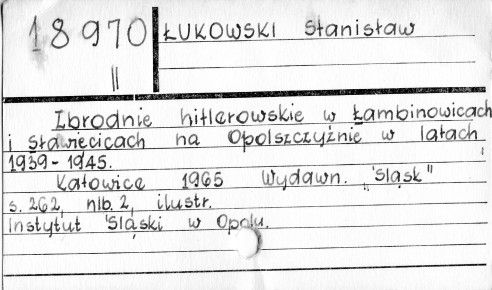 18970 ŁUKOWSKI Stanisław
II
Zbrodnie hitlerowskie w Łambinowicach
i Sławięcicach na Opolszczyźnie w latach
1939-1945.
Katowice 1965 Wydawn. "Śląsk"
s. 262, nlb. 2, ilustr.
Instytut Śląski w Opolu.